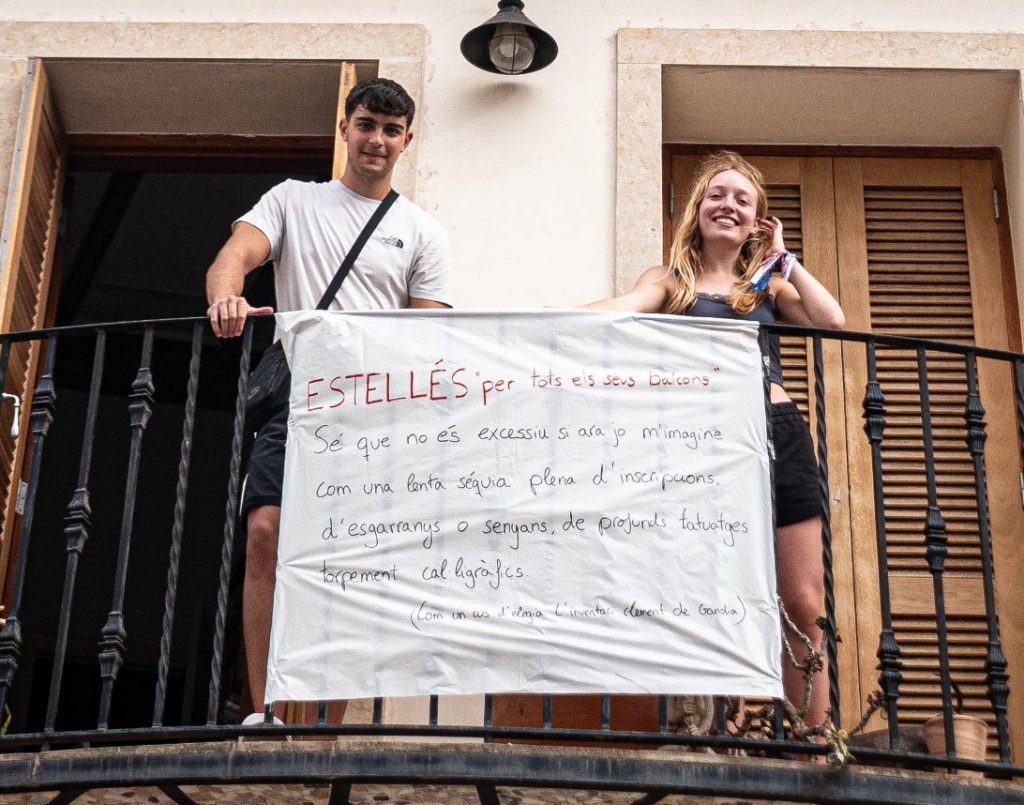 ESTELLÉS "per tots els seus balcons"
Sé que no és excessiu si ara jo m'imagine
com una lenta séquia plena d'inscripcions,
d'esgarranys o senyans, de profunds tatuatges
torpement cal·ligràfics.
(Com un cos d'elegia L'inventari clement de Gandia)
THE NORTH FACE